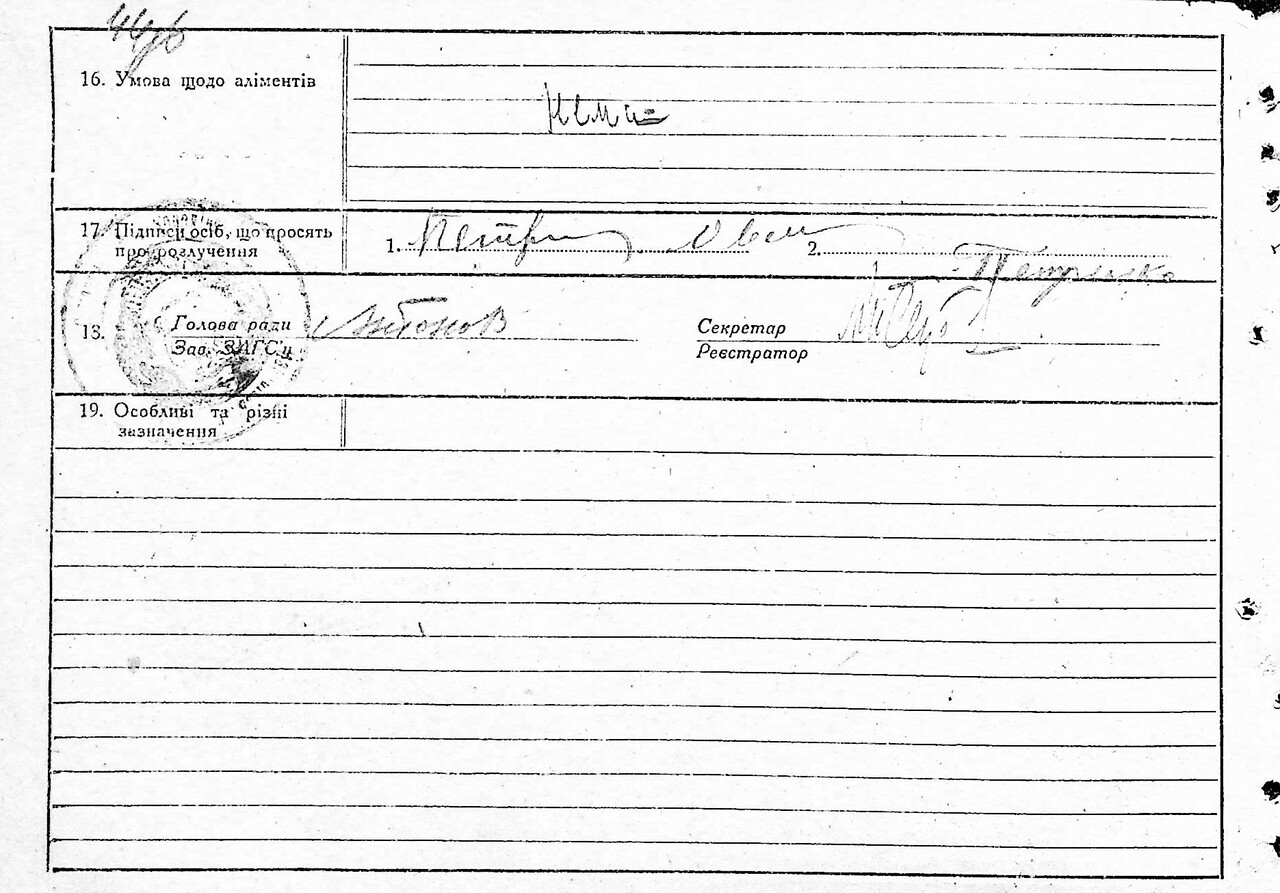 44
16. Умова щодо аліментів
нема
17. Підписи осіб, що просять
про розлучення
1. 2.
Петренко
18. Голова ради Антонов Секретар
Зав. ЗАГС'у Реєстратор
19. Особливі та різні
зазначення